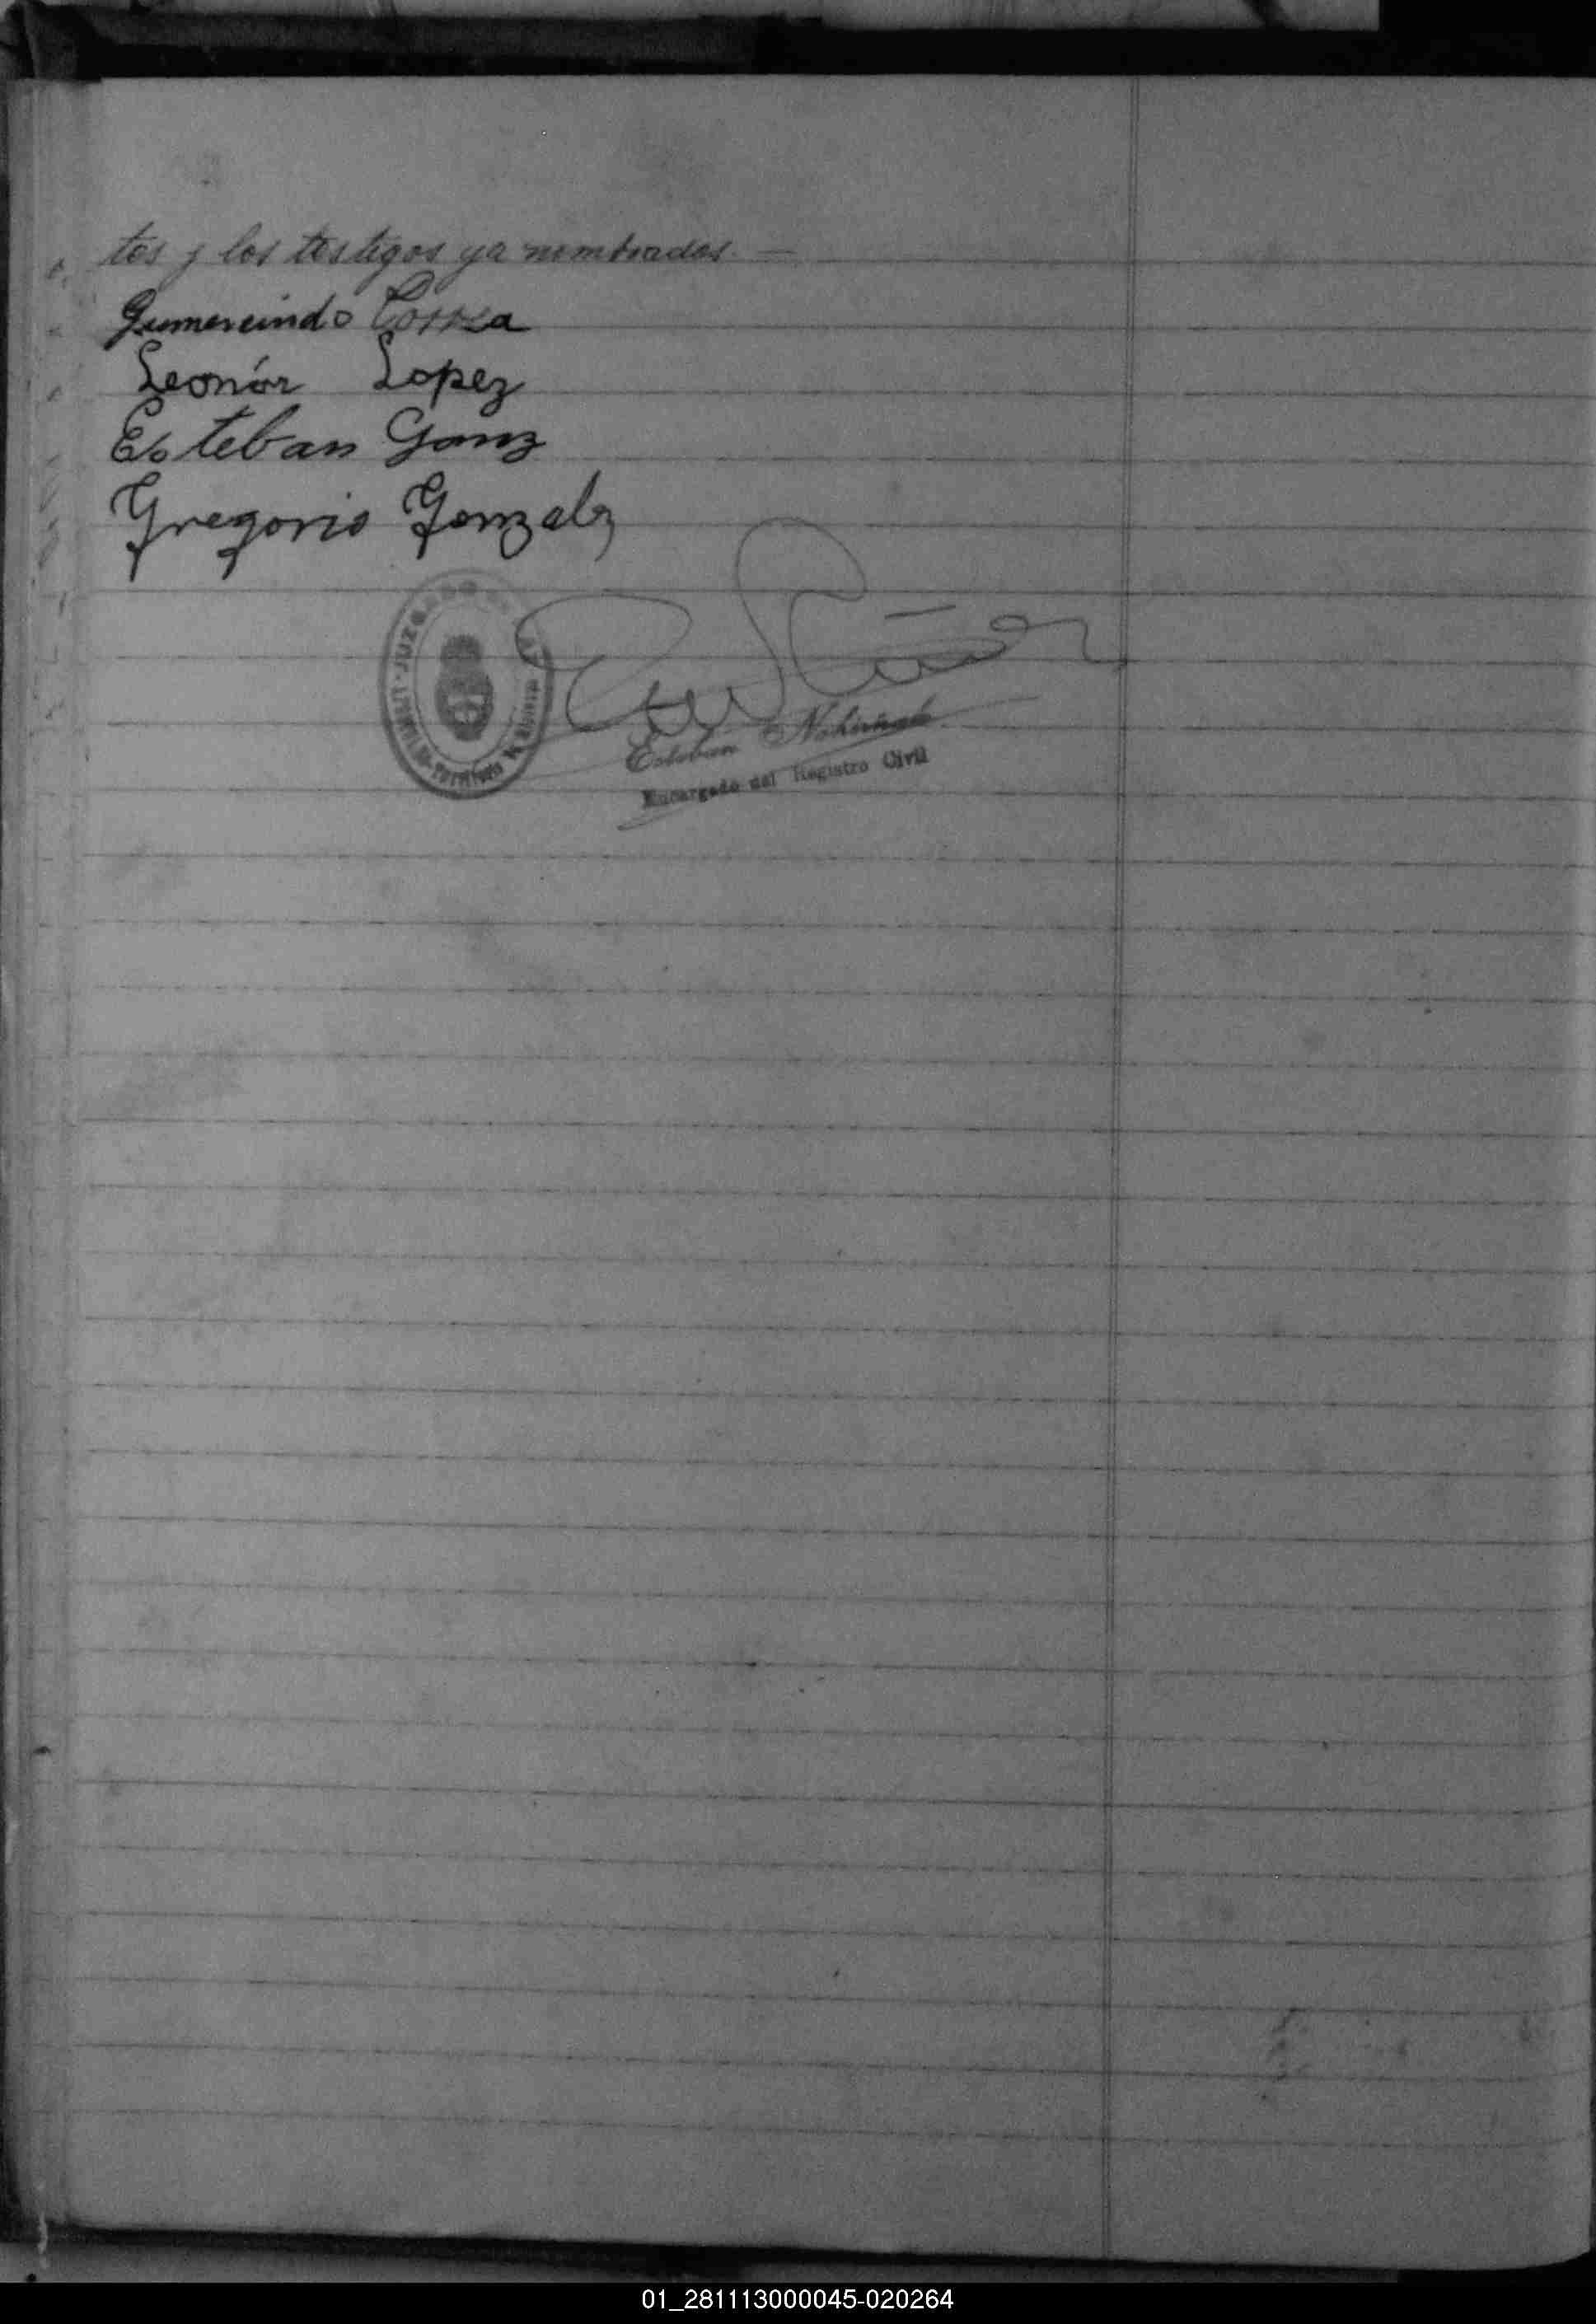 tos y los testigos ya nombrados. —
Gumercindo Correa
Leonór Lopez
Esteban Gomz
Gregorio Gonzalz
JUZGADO
Territorio de Misiones
Esteban
Encargado del Registro Civil
01_281113000045-020264